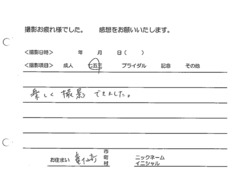 撮影お疲れ様でした。 感想をお願いいたします。
<撮影日時> 年 月 日( )
<撮影項目> 成人 七五三 ブライダル 記念 その他
楽しく撮影できました。
お住まい 市 町 村 ニックネーム イニシャル